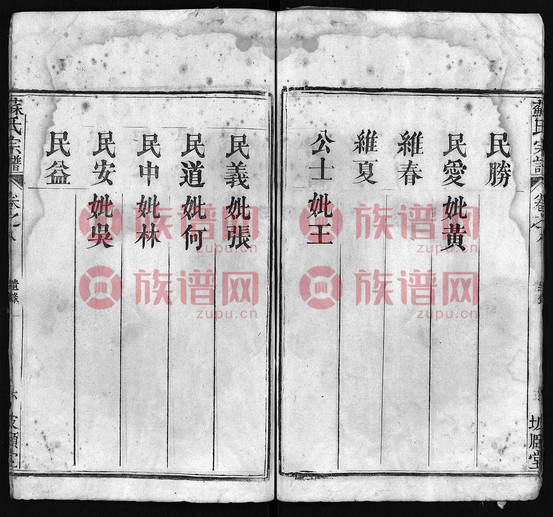 民勝
民愛妣黃
維春
維夏
公士妣王
民義妣張
民道妣何
民中妣林
民安妣吳
民益
蘇氏宗譜
卷之八
族谱网
zupu.cn
族谱网
zupu.cn
族谱网
zupu.cn
族谱网
zupu.cn